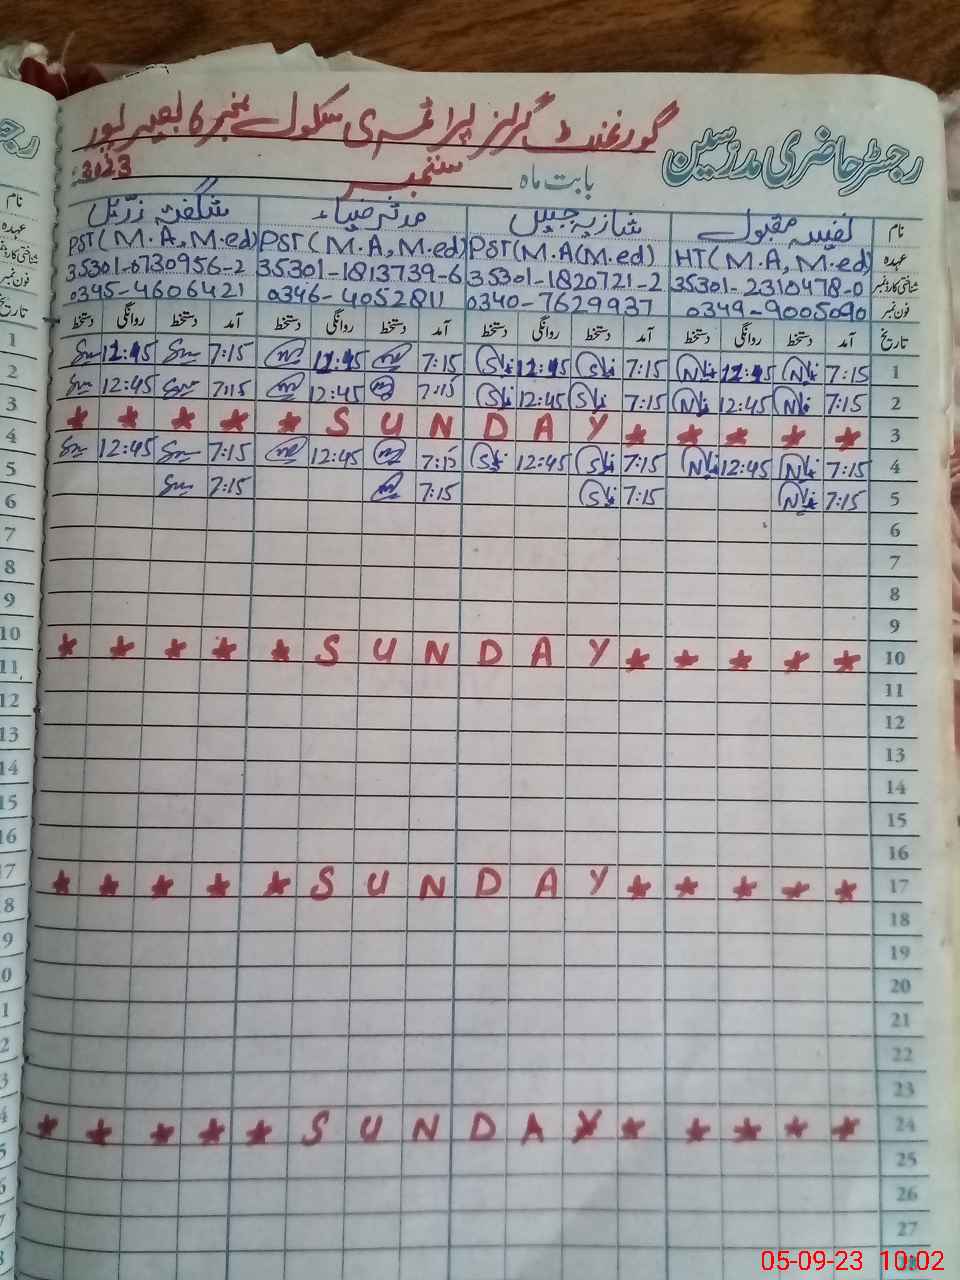 رجسٹر حاضری مدرسین
گورنمنٹ گرلز پرائمری سکول نمبر 6 بصیرپور
بابت ماہ ستمبر 2023
نام نفیسہ مقبول شازیہ جبیں مدثر ضیاء شگفتہ
عہدہ HT(M.A, M.ed) PST(M.A(M.ed) PST(M.A, M.ed) PST(M.A, M.ed)
شناختی کارڈ نمبر 35301-2310478-0 35301-1820721-2 35301-1813739-6 35301-0730956-2
فون نمبر 0349-9005090 0340-7629937 0346-4052811 0345-4606421
تاریخ آمد دستخط روانگی دستخط آمد دستخط روانگی دستخط آمد دستخط روانگی دستخط آمد دستخط روانگی دستخط
1 7:15 12:45 7:15 12:45 7:15 12:45 7:15 12:45
2 7:15 12:45 7:15 12:45 7:15 12:45 7:15 12:45
3 SUNDAY
4 7:15 12:45 7:15 12:45 7:15 12:45 7:15 12:45
5 7:15 7:15 7:15 7:15
6
7
8
9
10 SUNDAY
11
12
13
14
15
16
17 SUNDAY
18
19
20
21
22
23
24 SUNDAY
25
26
27
05-09-23 10:02